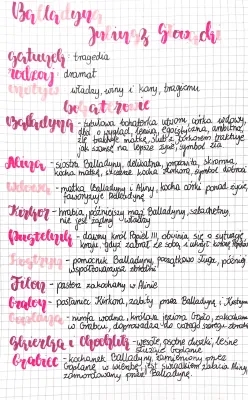 Balladyna
Juliusz Słowacki
gatunek : tragedia
rodzaj : dramat
motyw : władzy, winy i kary, tragizmu
bohaterowie
Balladyna - tytułowa bohaterka utworu, córka wdowy,
dba o wygląd, leniwa, egoistyczna, ambitna,
źle traktuje matkę, siostrę Kirkorem traktuje
jak szansę na lepsze życie, symbol zła
Alina - siostra Balladyny, delikatna, pracowita, skromna,
kocha matkę, szczerze kocha Kirkora, symbol dobroci
Wdowa - matka Balladyny i Aliny, kocha córki ponad życie,
faworyzuje Balladynę
Kirkor - hrabia, późniejszy mąż Balladyny, szlachetny,
nie jest żądny władzy
Pustelnik - dawny król Popiel III, obwinia się o sytuację
kraju, gdyż zabrał ze sobą i ukrył koronę
- pomocnik Balladyny, początkowo sługa, później
współtowarzysz zbrodni
Filon - pasterz zakochany w Alinie
Gralon - posłaniec Kirkora, zabity przez Balladynę i
Goplana - nimfa wodna, królowa jeziora Gopło, zakochana
w Grabcu, doprowadza do całego szeregu zbrodni
Skierka i Chochlik - wesołe, psotne duszki, leśne
służące Goplanie
Grabiec - kochanek Balladyny, zamieniony przez
Goplanę w wierzbę, był świadkiem zabicia Aliny,
zamordowany przez Balladynę.